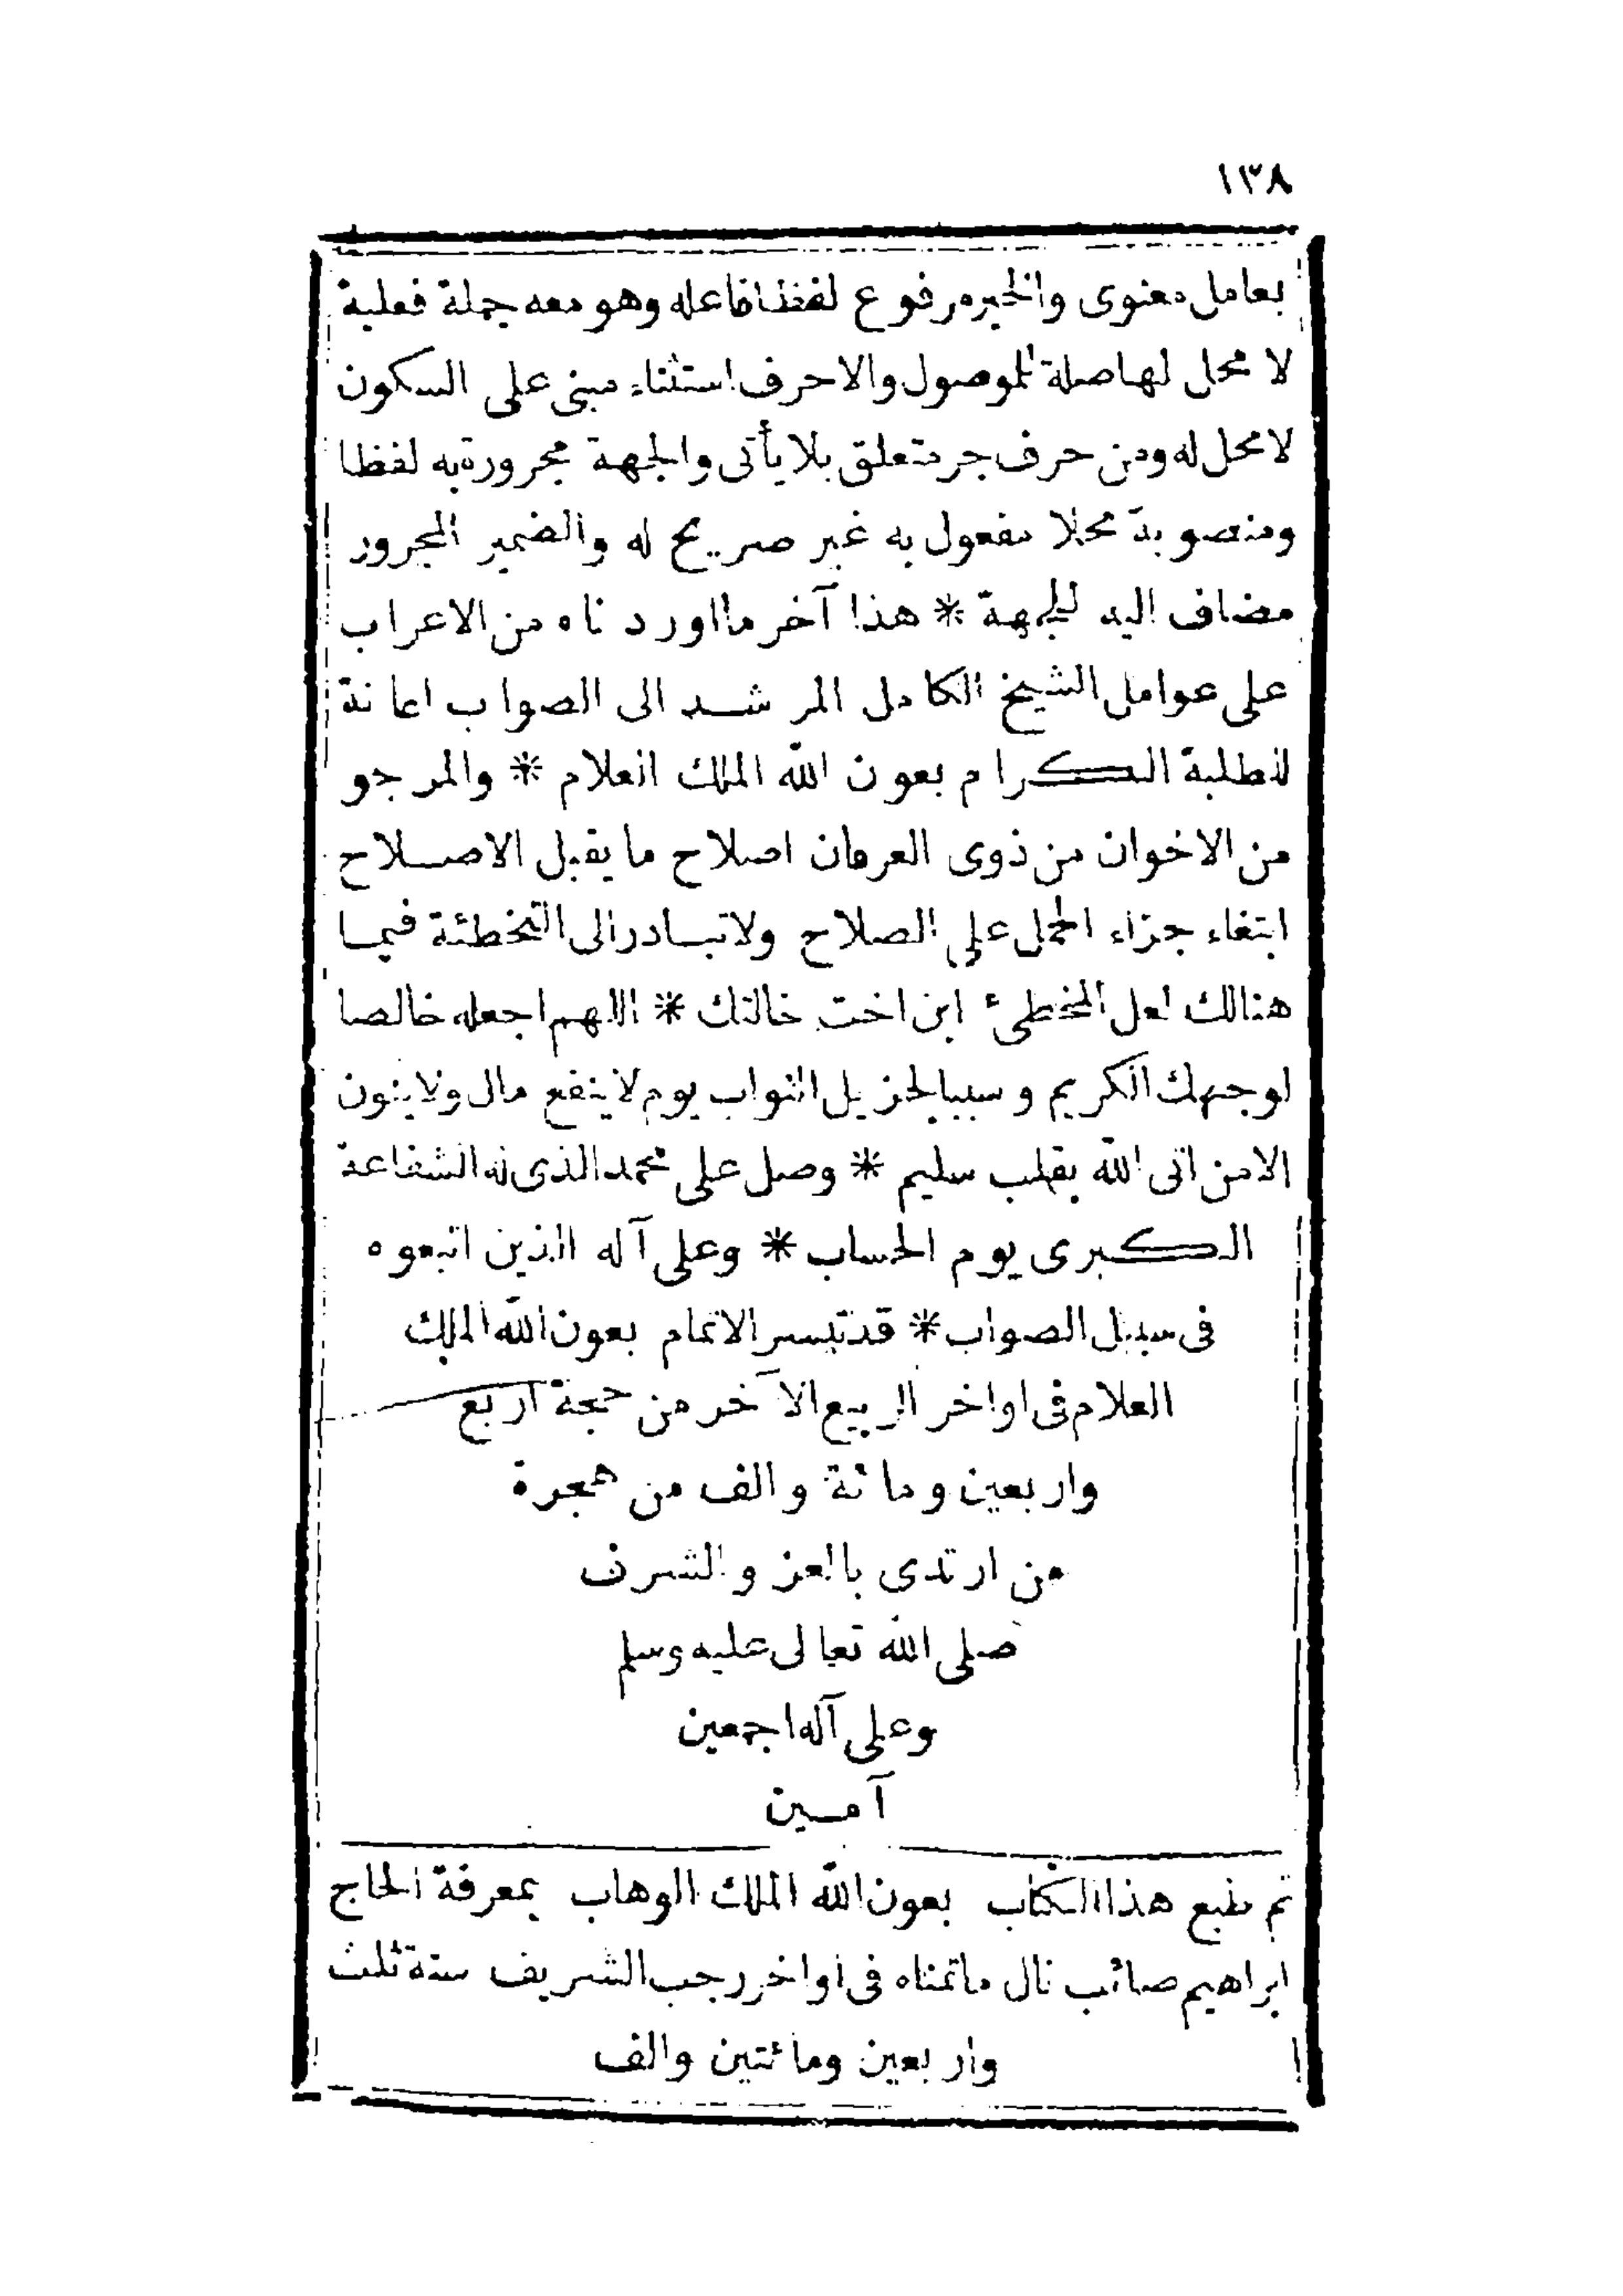 ١٣٨
بعامل معنوى والخير مرفوع لفظا فاعله وهو معه جملة فعلية
لا محل لها صلة للموصول والا حرف استثناء مبنى على السكون
لا محل له ومن حرف جر متعلق بلا يأتى والجهة مجرورة به لفظا
ومنصوبة محلا مفعول به غير صريح له والضمير المجرور
مضاف اليه للجهة * هذا آخر ما اوردناه من الاعراب
على عوامل الشيخ الكامل المرشد الى الصواب اعانة
للطلبة الكرام بعون الله الملك العلام * والمرجو
من الاخوان من ذوى العرفان اصلاح ما يقبل الاصلاح
ابتغاء جزاء الحمل على الصلاح ولا تبادر الى التخطئة فيما
هنالك لعل المخطئ ابن اخت خالتك * اللهم اجعله خالصا
لوجهك الكريم وسببا لجزيل الثواب يوم لا ينفع مال ولا بنون
الا من اتى الله بقلب سليم * وصل على محمد الذى له الشفاعة
الكبرى يوم الحساب * وعلى آله الذين اتبعوه
فى سبيل الصواب * قد تيسر الاتمام بعون الله الملك
العلام فى اواخر الربيع الآخر من حجة اربع
واربعين ومائة والف من هجرة
من ارتدى بالعز والشرف
صلى الله تعالى عليه وسلم
وعلى آله اجمعين
آمين
تم طبع هذا الكتاب بعون الله الملك الوهاب بمعرفة الحاج
ابراهيم صائب نال ما تمناه فى اواخر رجب الشريف سنة ثلث
واربعين ومائتين والف